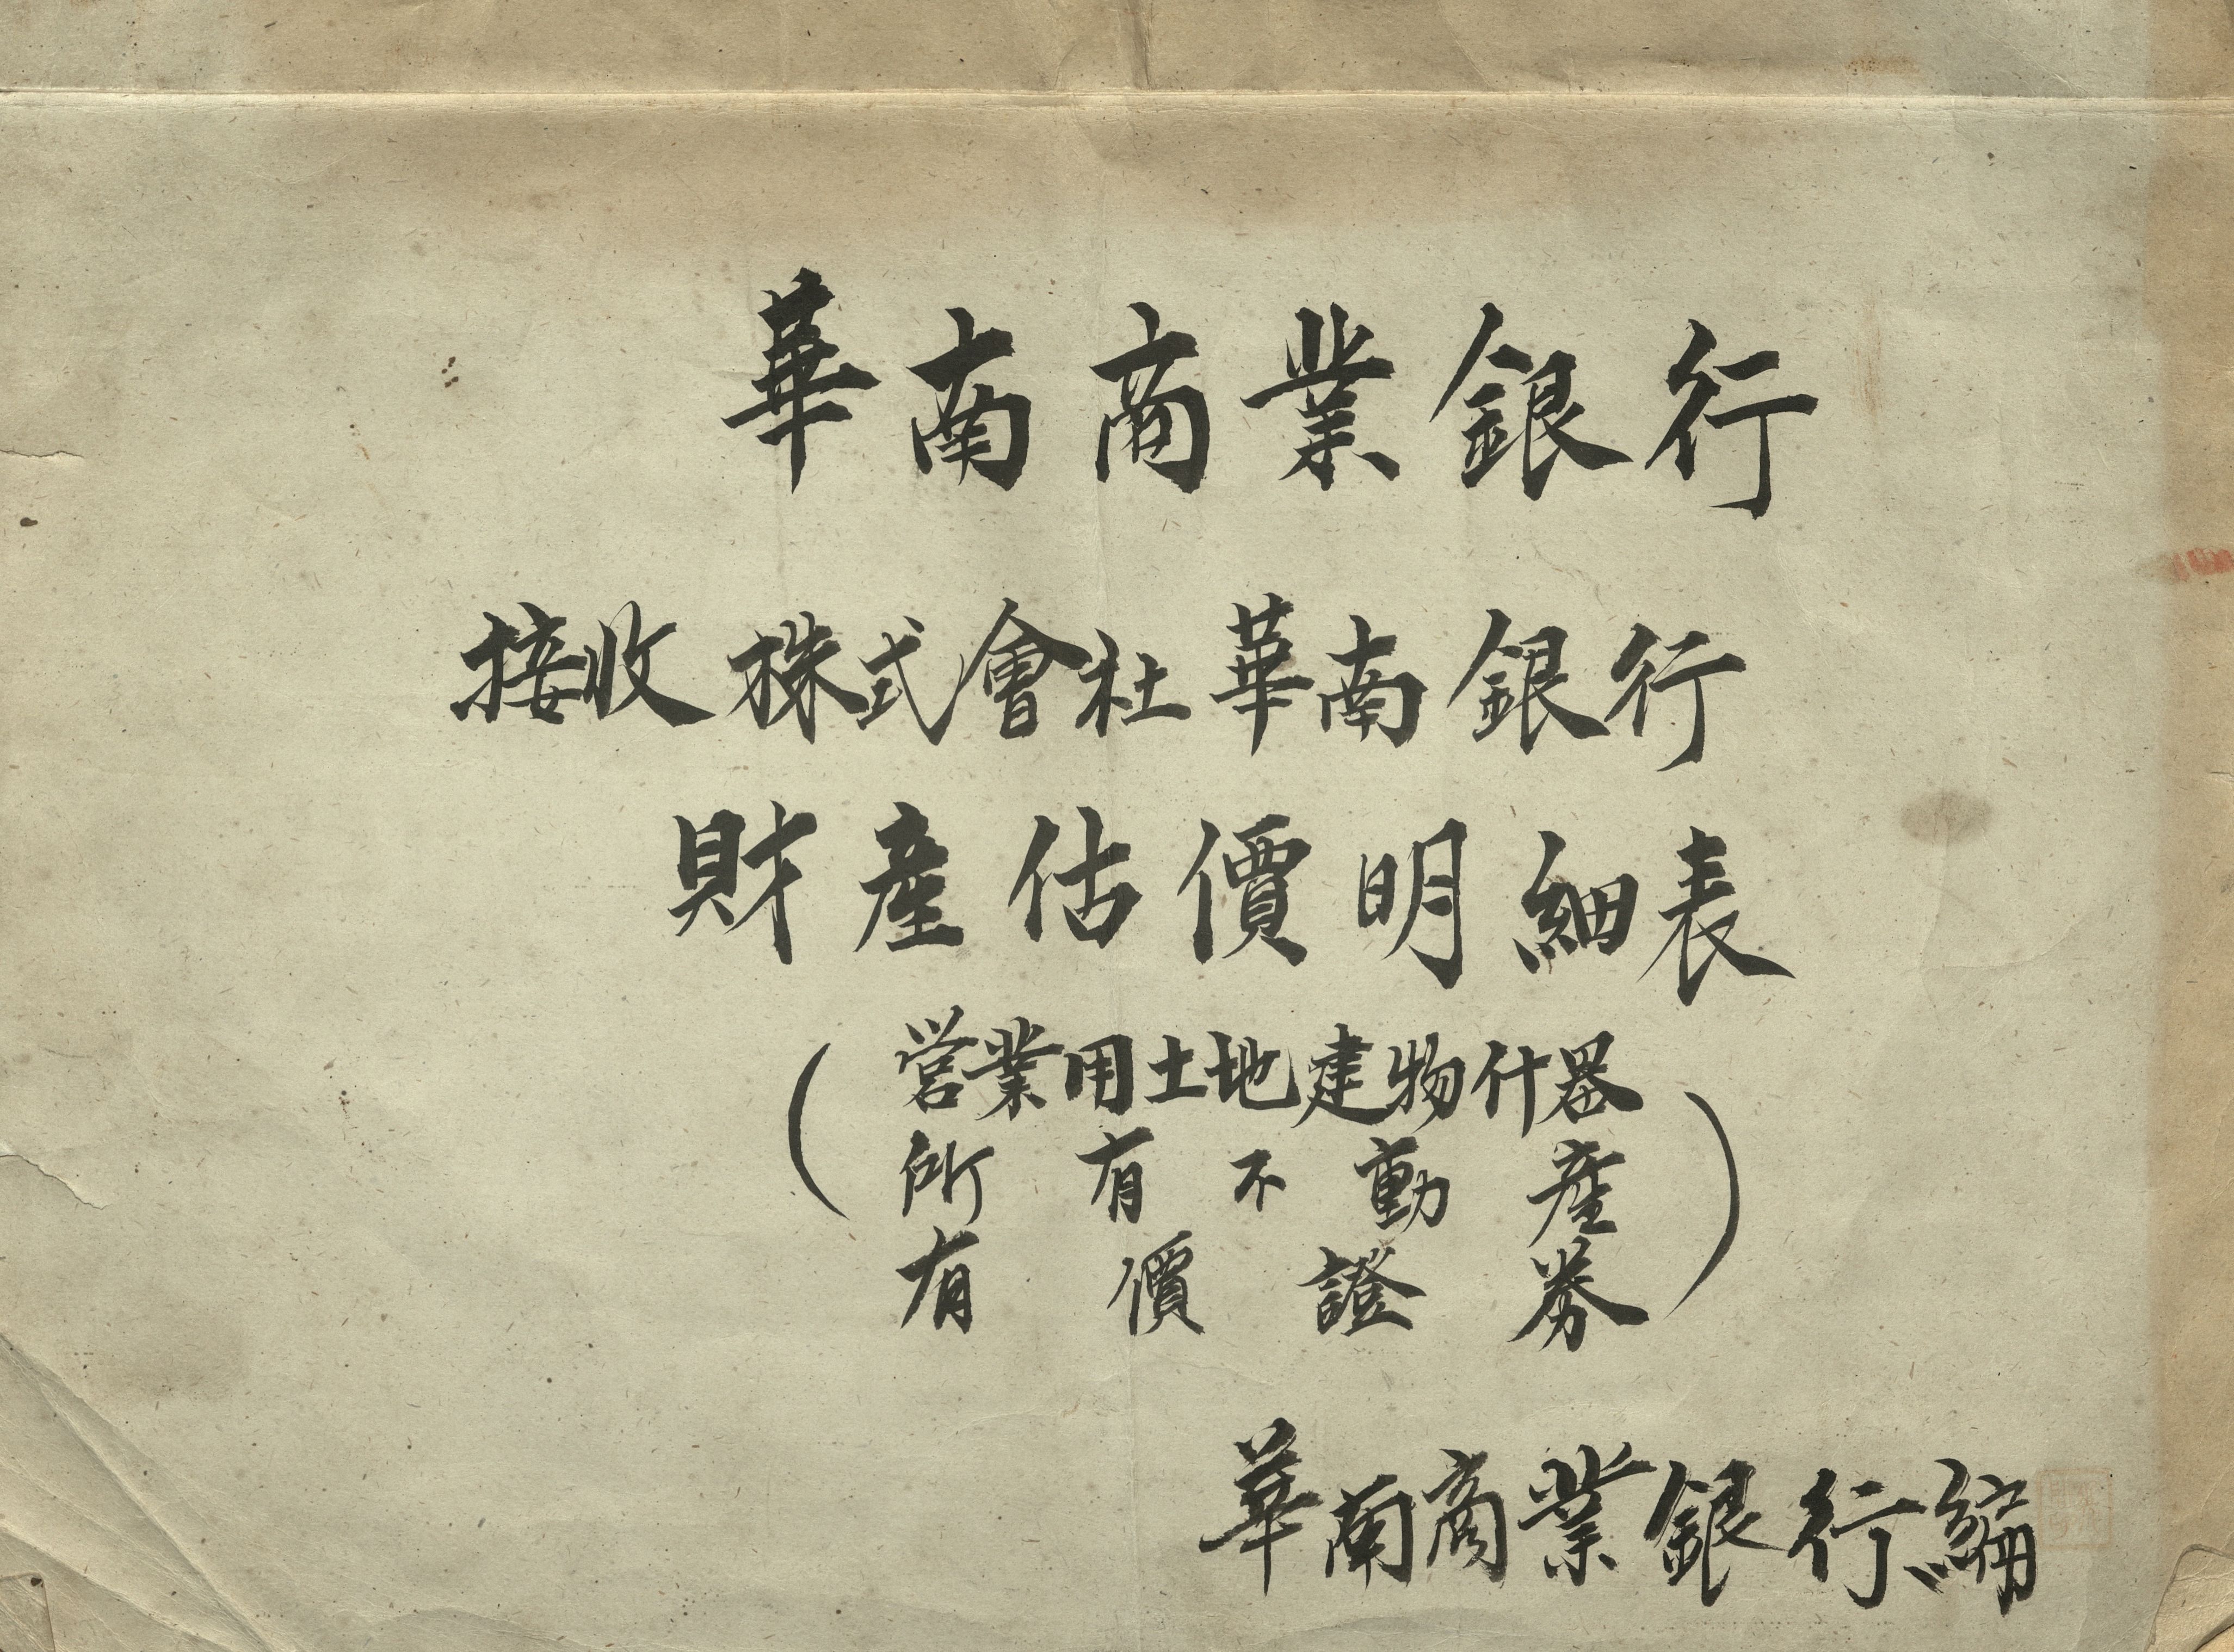 華南商業銀行
接收 株式會社華南銀行
財產估價明細表
(営業用土地建物什器
所有不動產
有價證券)
華南商業銀行編